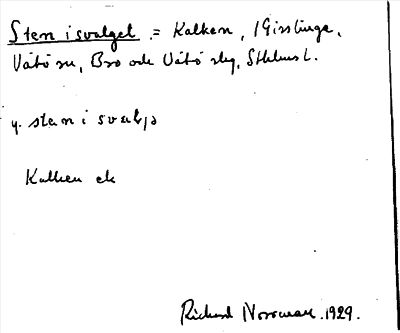 Sten i svalget = Kalken, i Gisslinge,
Vätö sn, Bro och Vätö slg, Sthlms l.
y. sten i svalja
Kalken etc
Richard Norrman. 1929.